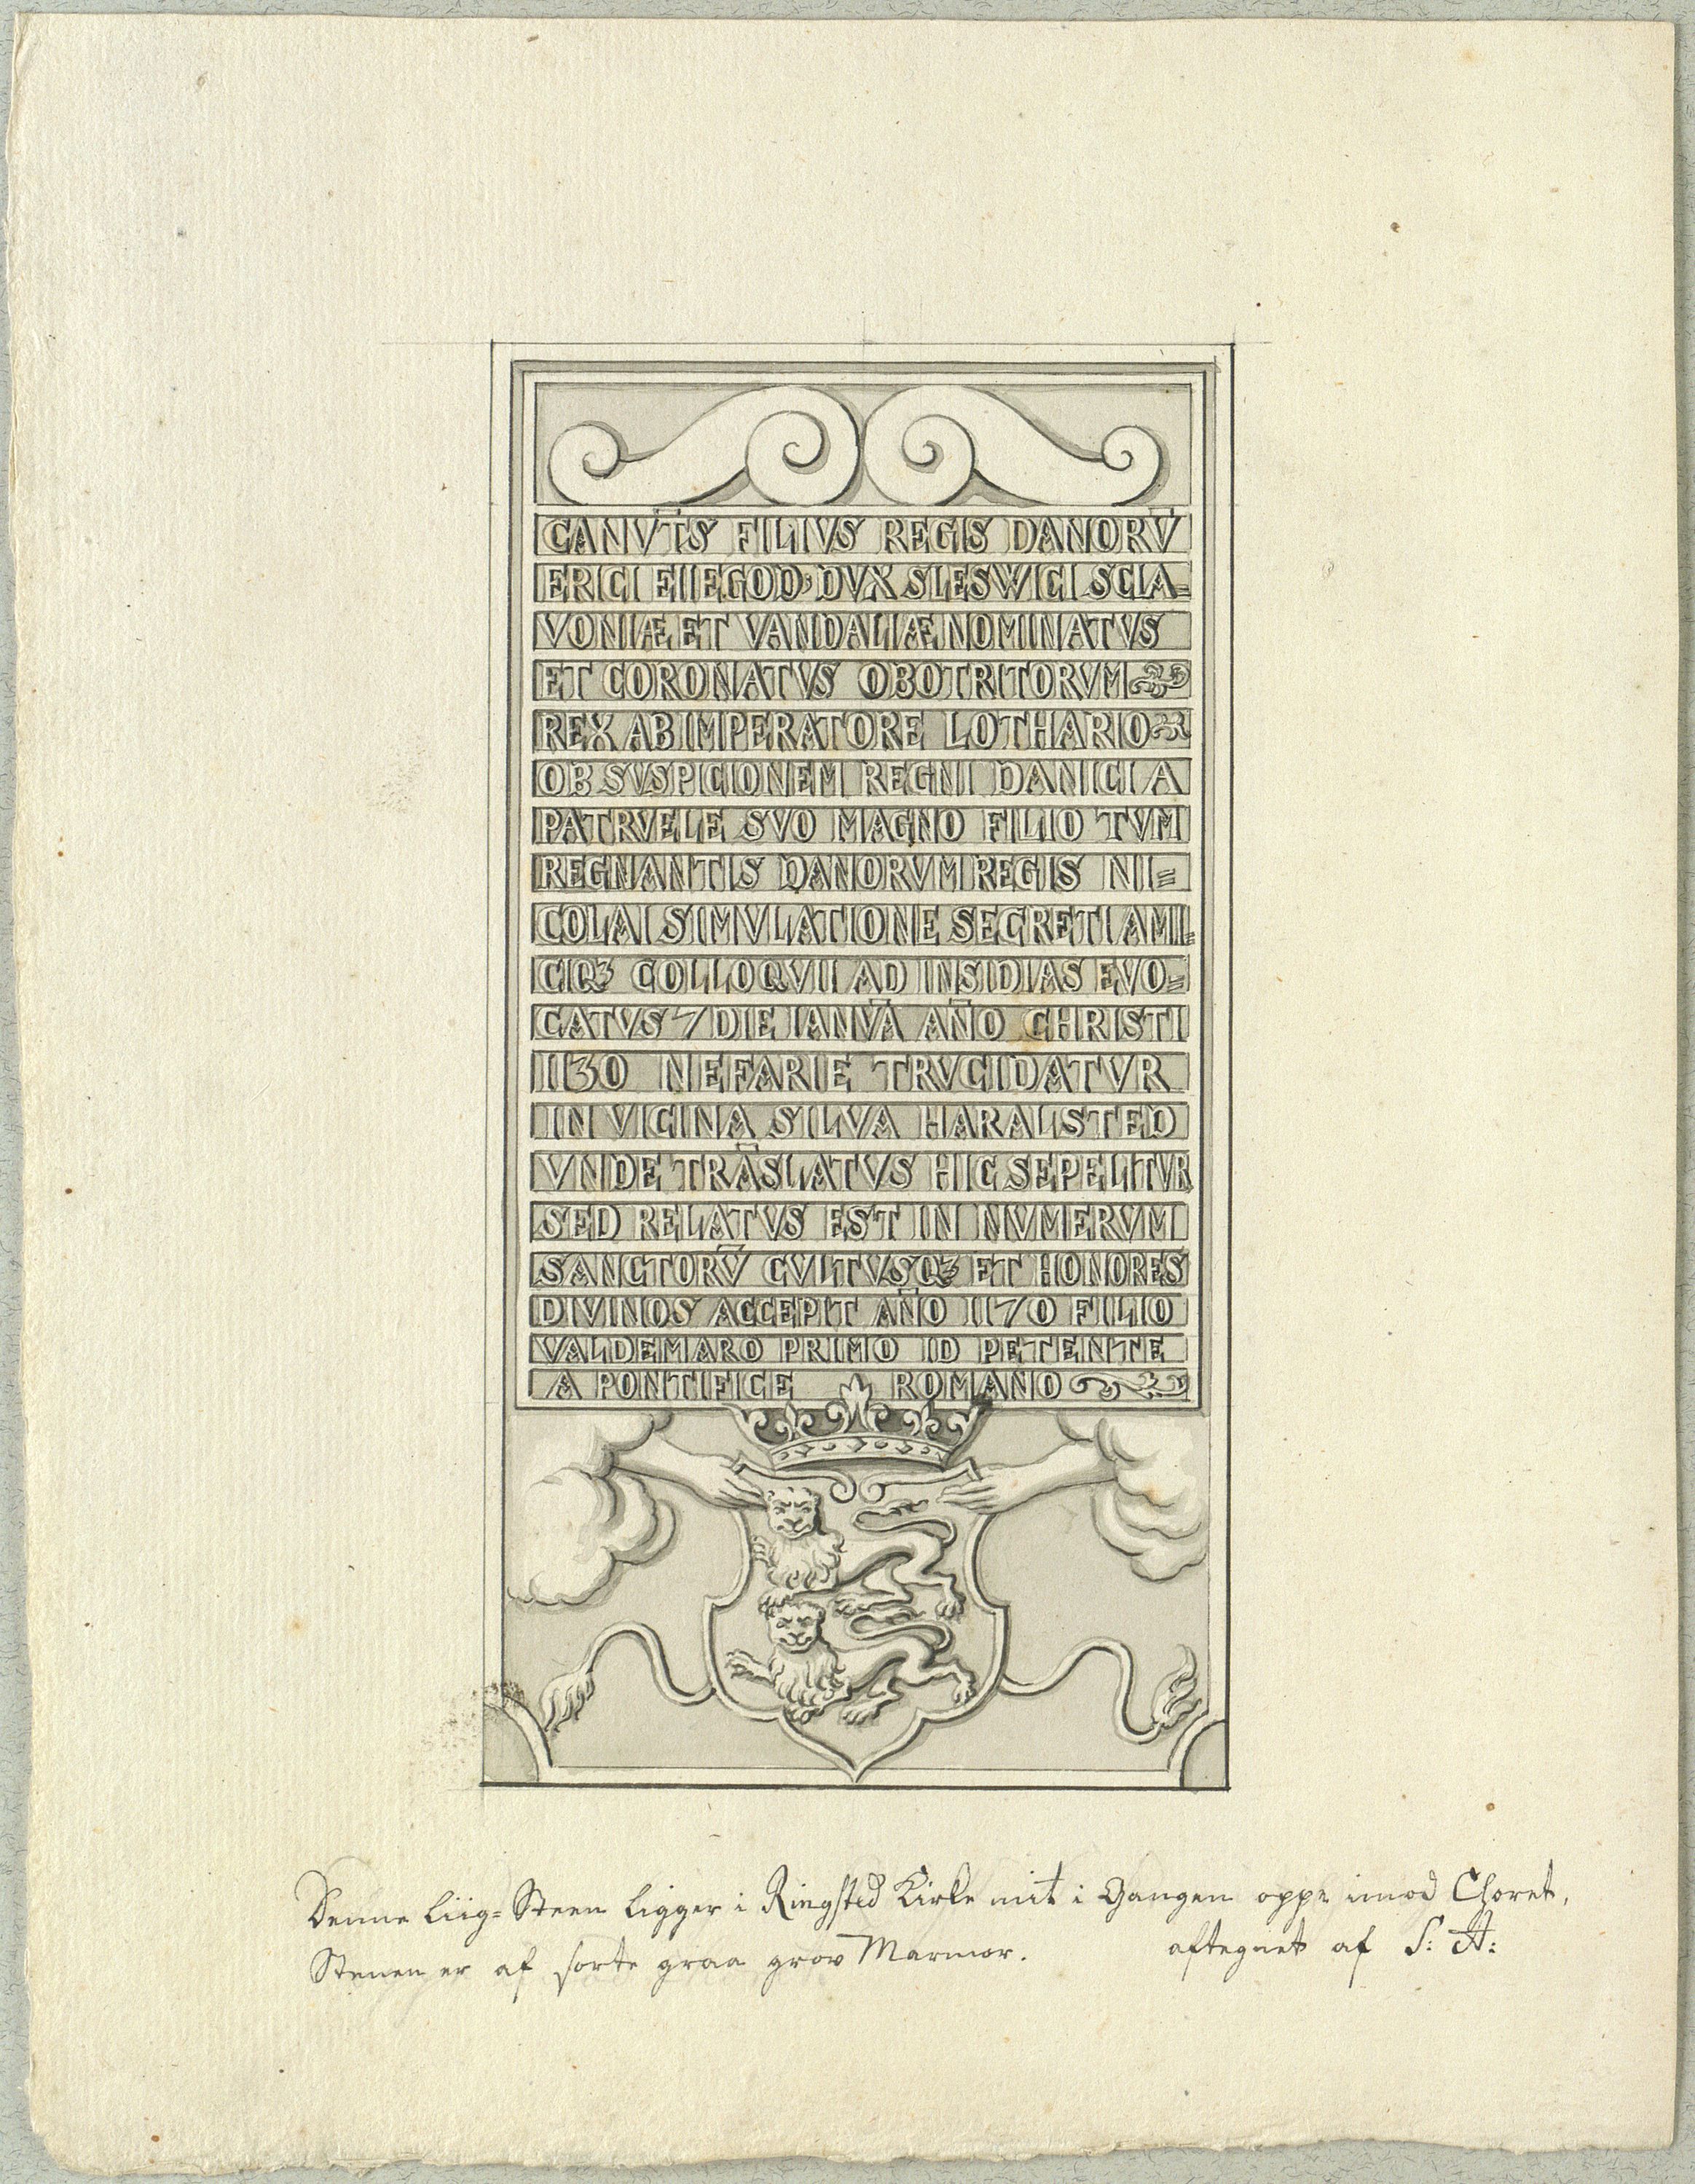 CANVT̄S FILIVS REGIS DANORV̄
ERICI EIIEGOD: DVX SLESWICI SCLA=
VONIÆ ET VANDALIÆ NOMINATVS
ET CORONATVS OBOTRITORVM
REX AB IMPERATORE LOTHARIO
OB SVSPICIONEM REGNI DANICI A
PATRVELE SVO MAGNO FILIO TVM
REGNANTIS DANORVM REGIS NI=
COLAI SIMVLATIONE SECRETI AMI=
CIQꝫ COLLOQVII AD INSIDIAS EVO=
CATVS 7 DIE IANVĀ AN̄O CHRISTI
1130 NEFARIE TRVCIDATVR
IN VICINA SILVA HARALSTED
VNDE TRĀSLATVS HIC SEPELITVR
SED RELATVS EST IN NVMERVM
SANCTORV̄ CVLTVSQꝫ ET HONORES
DIVINOS ACCEPIT AN̄O 1170 FILIO
VALDEMARO PRIMO ID PETENTE
A PONTIFICE ROMANO
Denne Liig=Steen ligger i Ringsted Kirke mit i Gangen oppe imod Choret,
Stenen er af sorte graa grov Marmor. aftegnet af S: A: